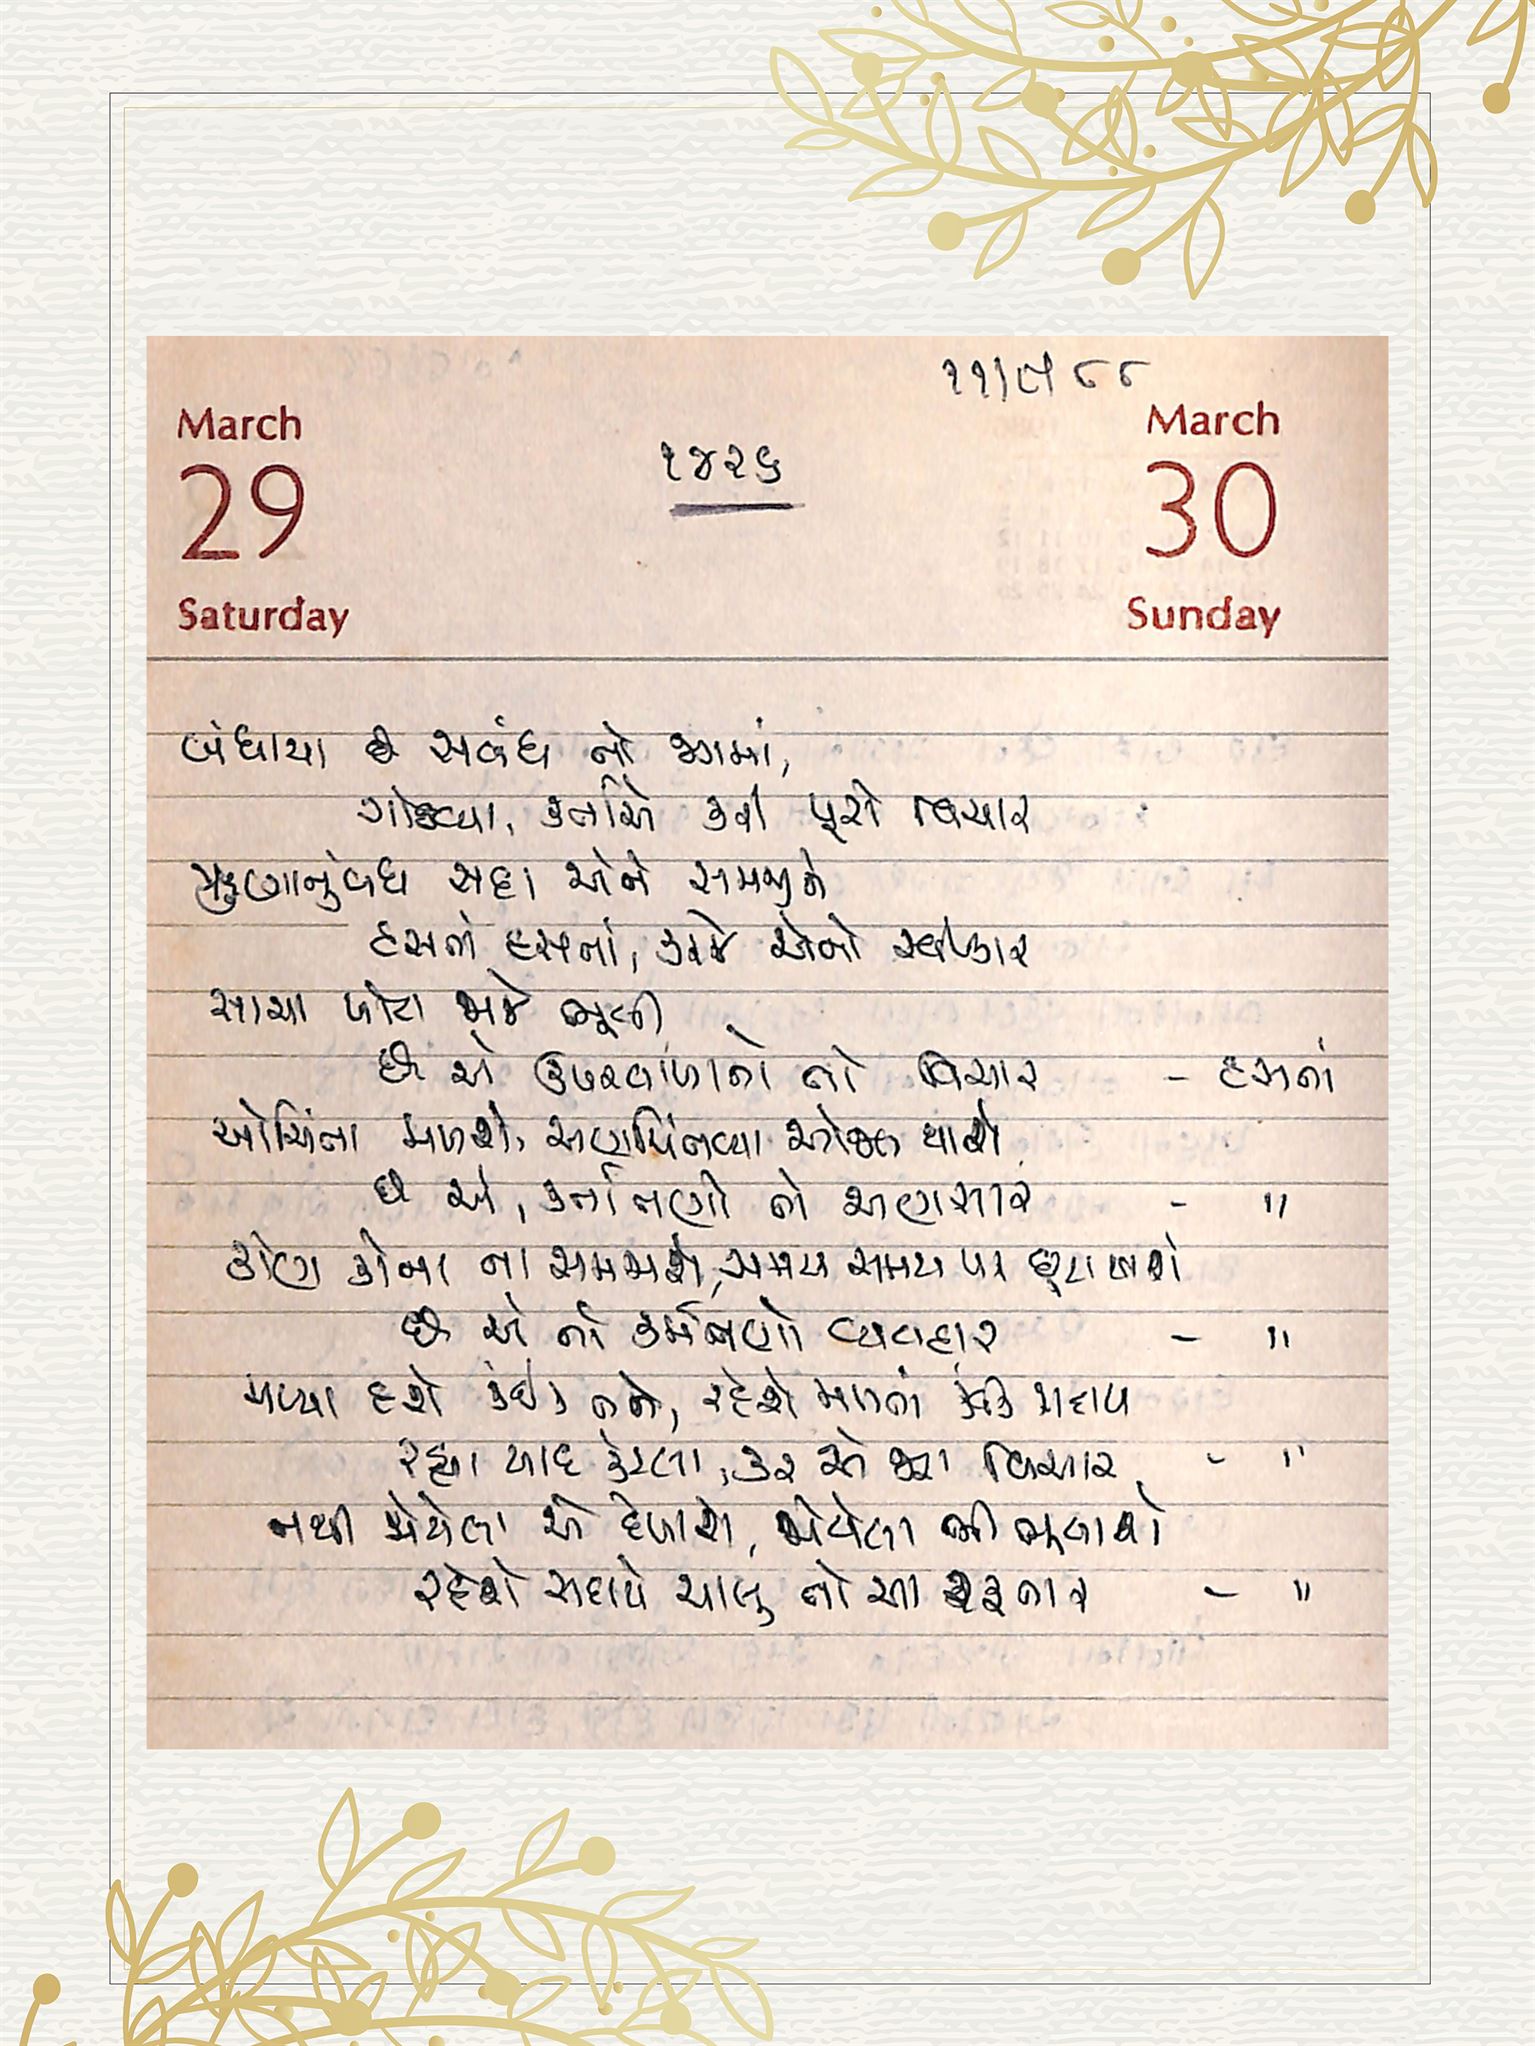 ૧૧/૯/૮૮
March
29
Saturday
૧૪૨૬
March
30
Sunday
બંધાયા છે સબંધ તો જગમાં,
ગોઠવ્યા, કર્તાએ કરી પૂરો વિચાર
ઋણાનુંબંધ સદા એને સમજીને
હસતાં હસતાં, કરજે એનો સ્વીકાર
સાચા ખોટા ભલે ભૂલી
છે એ ઉપરવાળાનો તો વિચાર - હસતાં
ઓચિંતા મળશે, અણચિંતવ્યા ઓજલ થાશે
છે એ, કર્તાતણી તો અણસાર - "
કોણ કોના ના સમજાશે, સમય સમય પર છૂટા થાશે
છે એ તો કર્મતણો વ્યવહાર - "
મળ્યા હશે કંઈક તને, રહેશે મળતાં કંઈક સદાય
રહ્યા યાદ કેટલા, કર એ જરા વિચાર - "
નથી જોયેલા એ દેખાશે, જોયેલા ભી ભૂલાશે
રહેશે સદાયે ચાલુ તો આ રફતાર - "